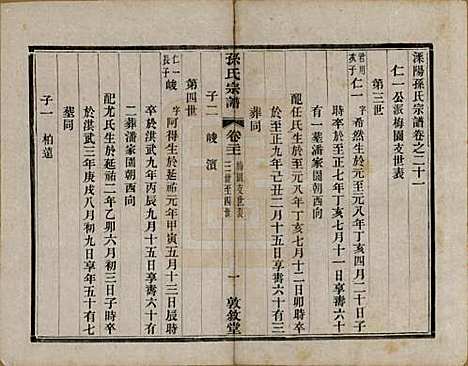 溧陽孫氏宗譜卷之二十一
仁一公派梅園支世表
第三世
仁一 字希然生於至元八年丁亥四月二十日子
時卒於至正七年丁亥七月十一日享壽六十
有一葬潘家園朝西向
配任氏生於至元八年丁亥七月十二日卯時卒
於至正九年己丑二月十五日享壽六十
墓同
子二 峻 濱
孫氏宗譜 卷二十一 梅園支世表 三世至四世 一 敦敘堂
第四世
仁一長子 峻 字阿得生於延祐元年甲寅五月十三日辰時
卒於洪武九年丙辰九月十五日享壽六十
二葬潘家園朝西向
配尤氏生於延祐二年乙卯六月初三日子時卒
於洪武三年庚戌八月初九日享年五十有七
墓同
子一 柏遠